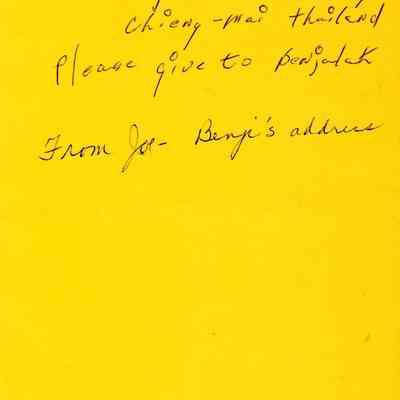 Chieng-mai Thailand
Please give to Benjalak
From Joe- Benji's address